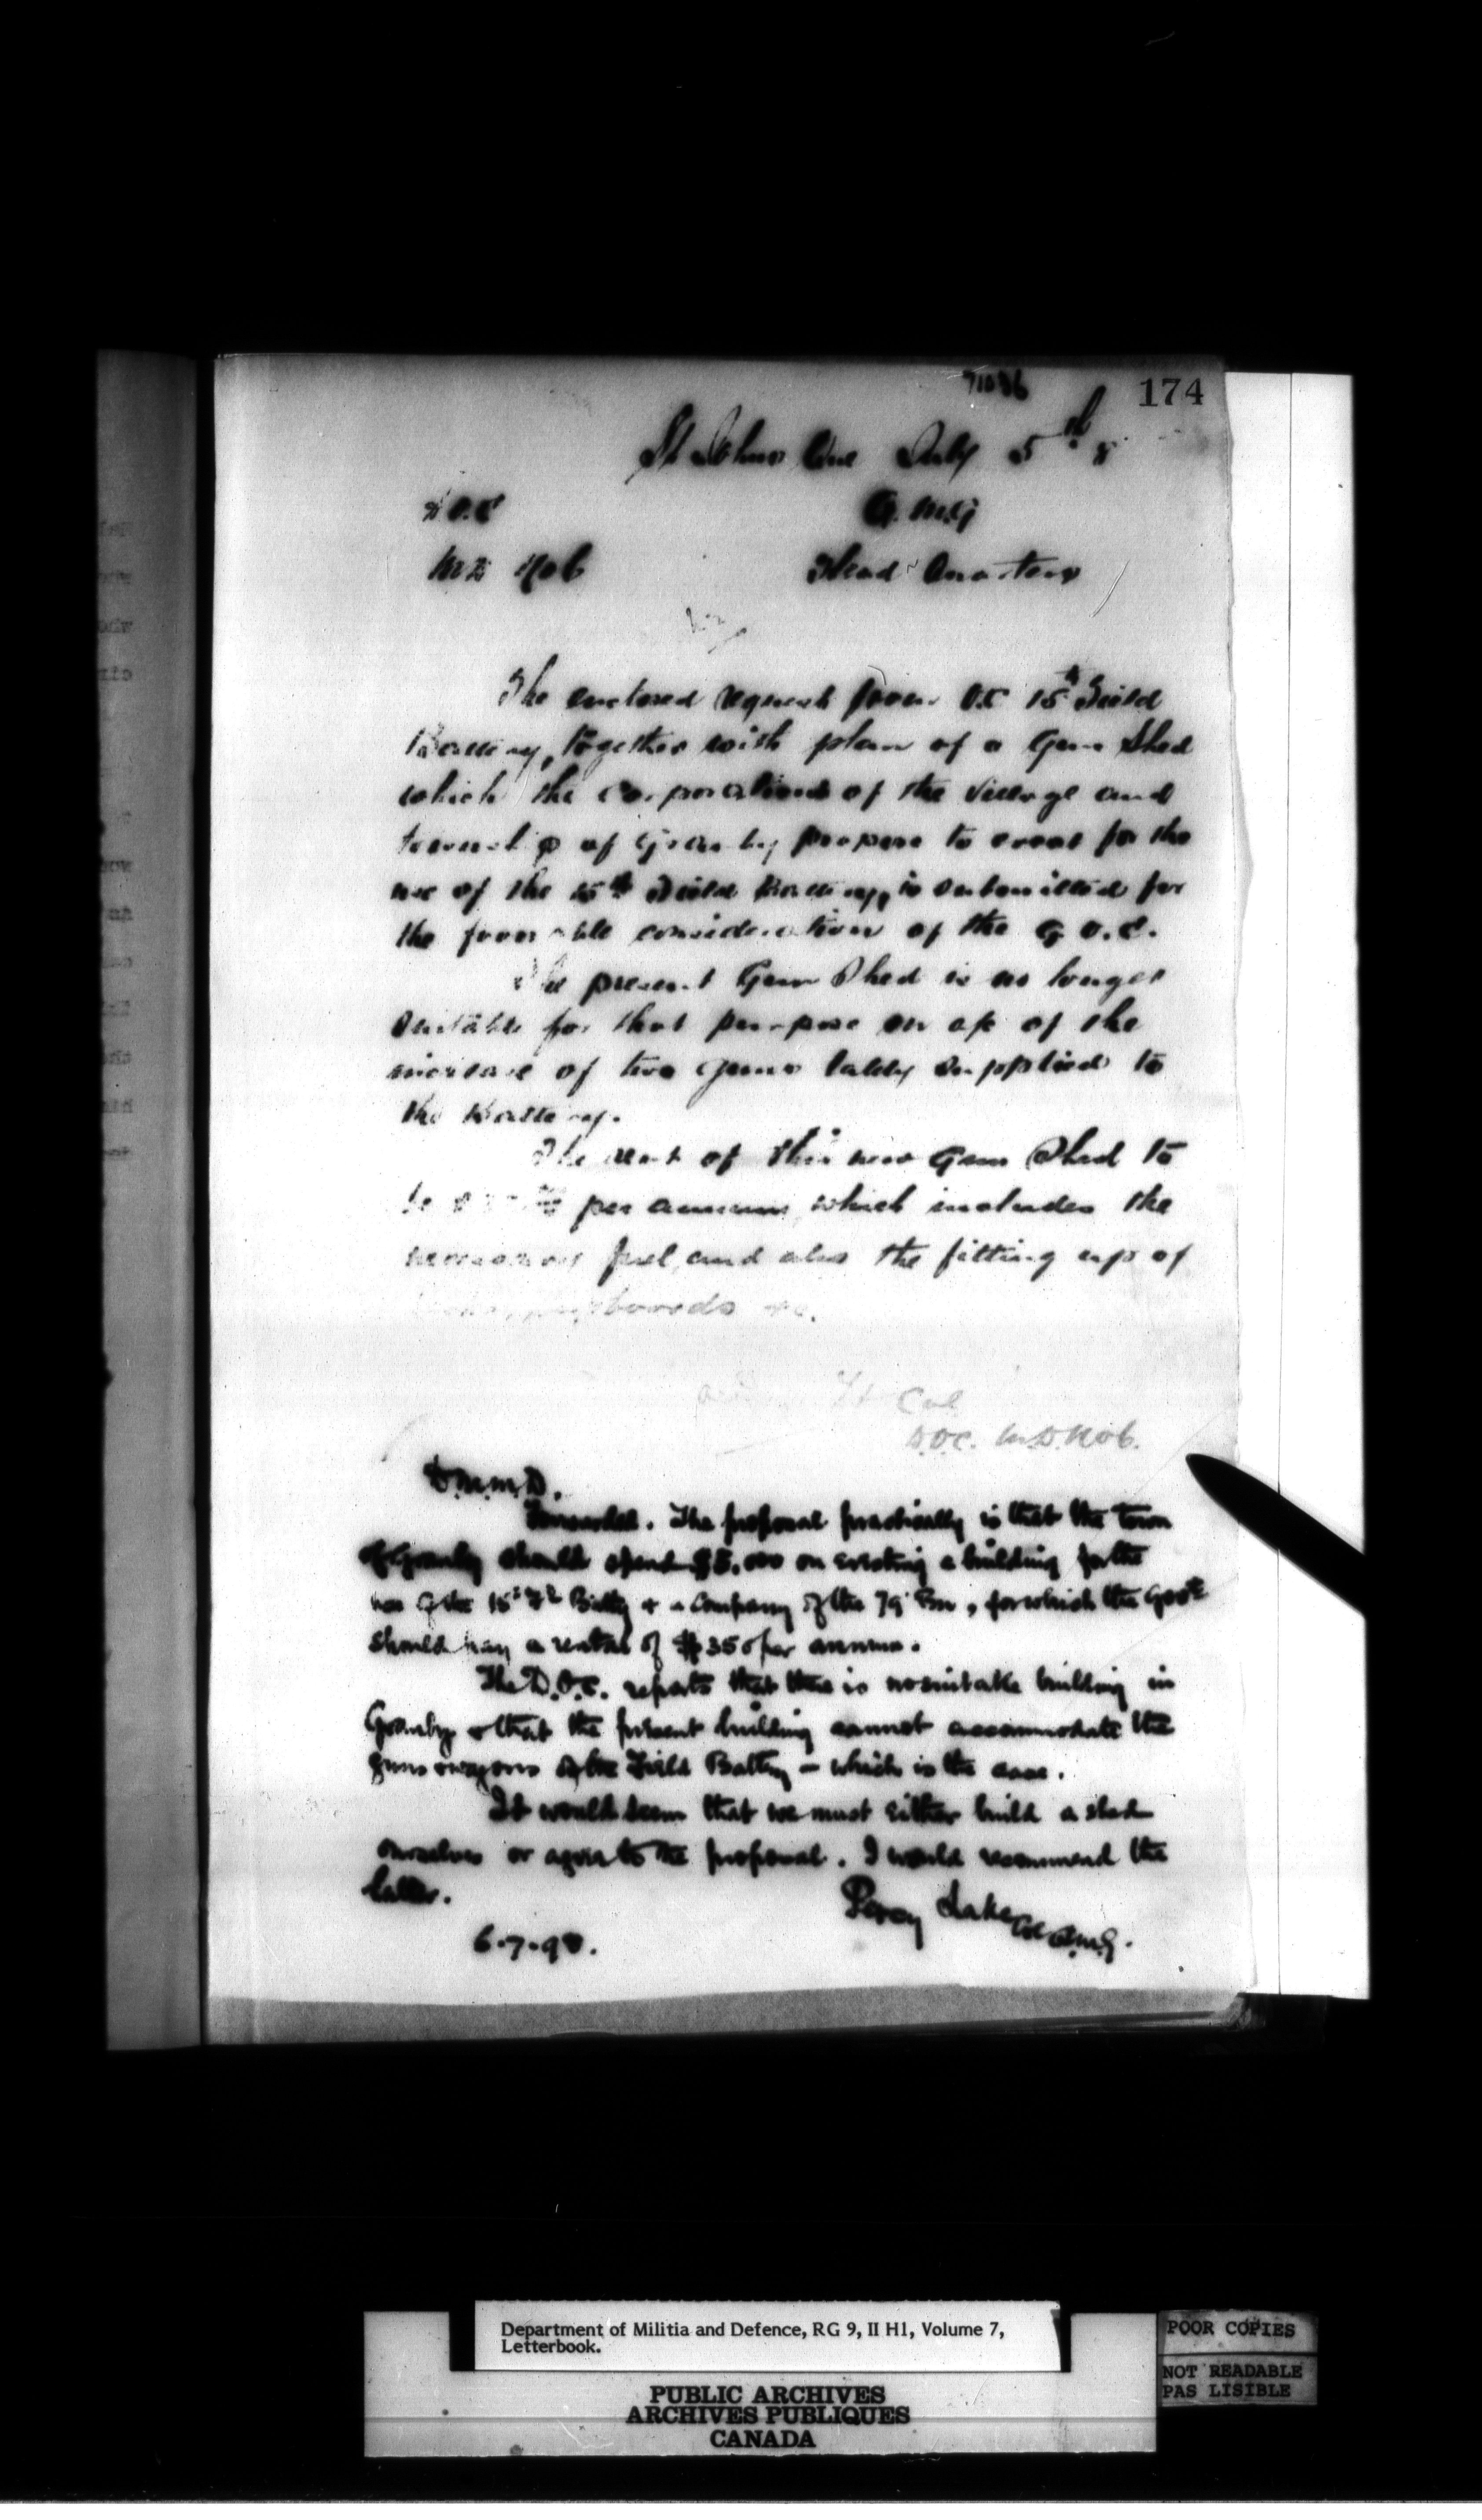 71036
174
St Johns Que July 5th
D.O.C Q.M.G
M.D. No 6 Head Quarters
The enclosed request from O.C 15th Field
Battery, together with plan of a Gun Shed
which the Corporations of the Village and
township of Granby propose to erect for the
use of the 15th Field Battery, is submitted for
the favorable consideration of the G.O.C.
The present Gun Shed is no longer
suitable for that purpose on a/c of the
increase of two guns lately supplied to
the Battery.
The rent of this new Gun Shed to
be per annum, which includes the
necessary fuel, and also the fitting up of
boards &c.
Lt Col
D.O.C. M.D. No 6.
D.M.M.D.
Forwarded. The proposal practically is that the town
of Granby should spend $5,000 on erecting a building for the
use of the 15th Fd Batty & a Company of the 79 Bn, for which the Govt
should pay a rental of $350 per annum.
The D.O.C. reports that there is no suitable building in
Granby & that the present building cannot accommodate the
guns & wagons of the Field Battery - which is the case.
It would seem that we must either build a shed
ourselves or agree to the proposal. I would recommend the
latter.
Percy Lake Col Q.M.G.
6.7.98.
Department of Militia and Defence, RG 9, II H1, Volume 7,
Letterbook.
POOR COPIES
NOT READABLE
PAS LISIBLE
PUBLIC ARCHIVES
ARCHIVES PUBLIQUES
CANADA